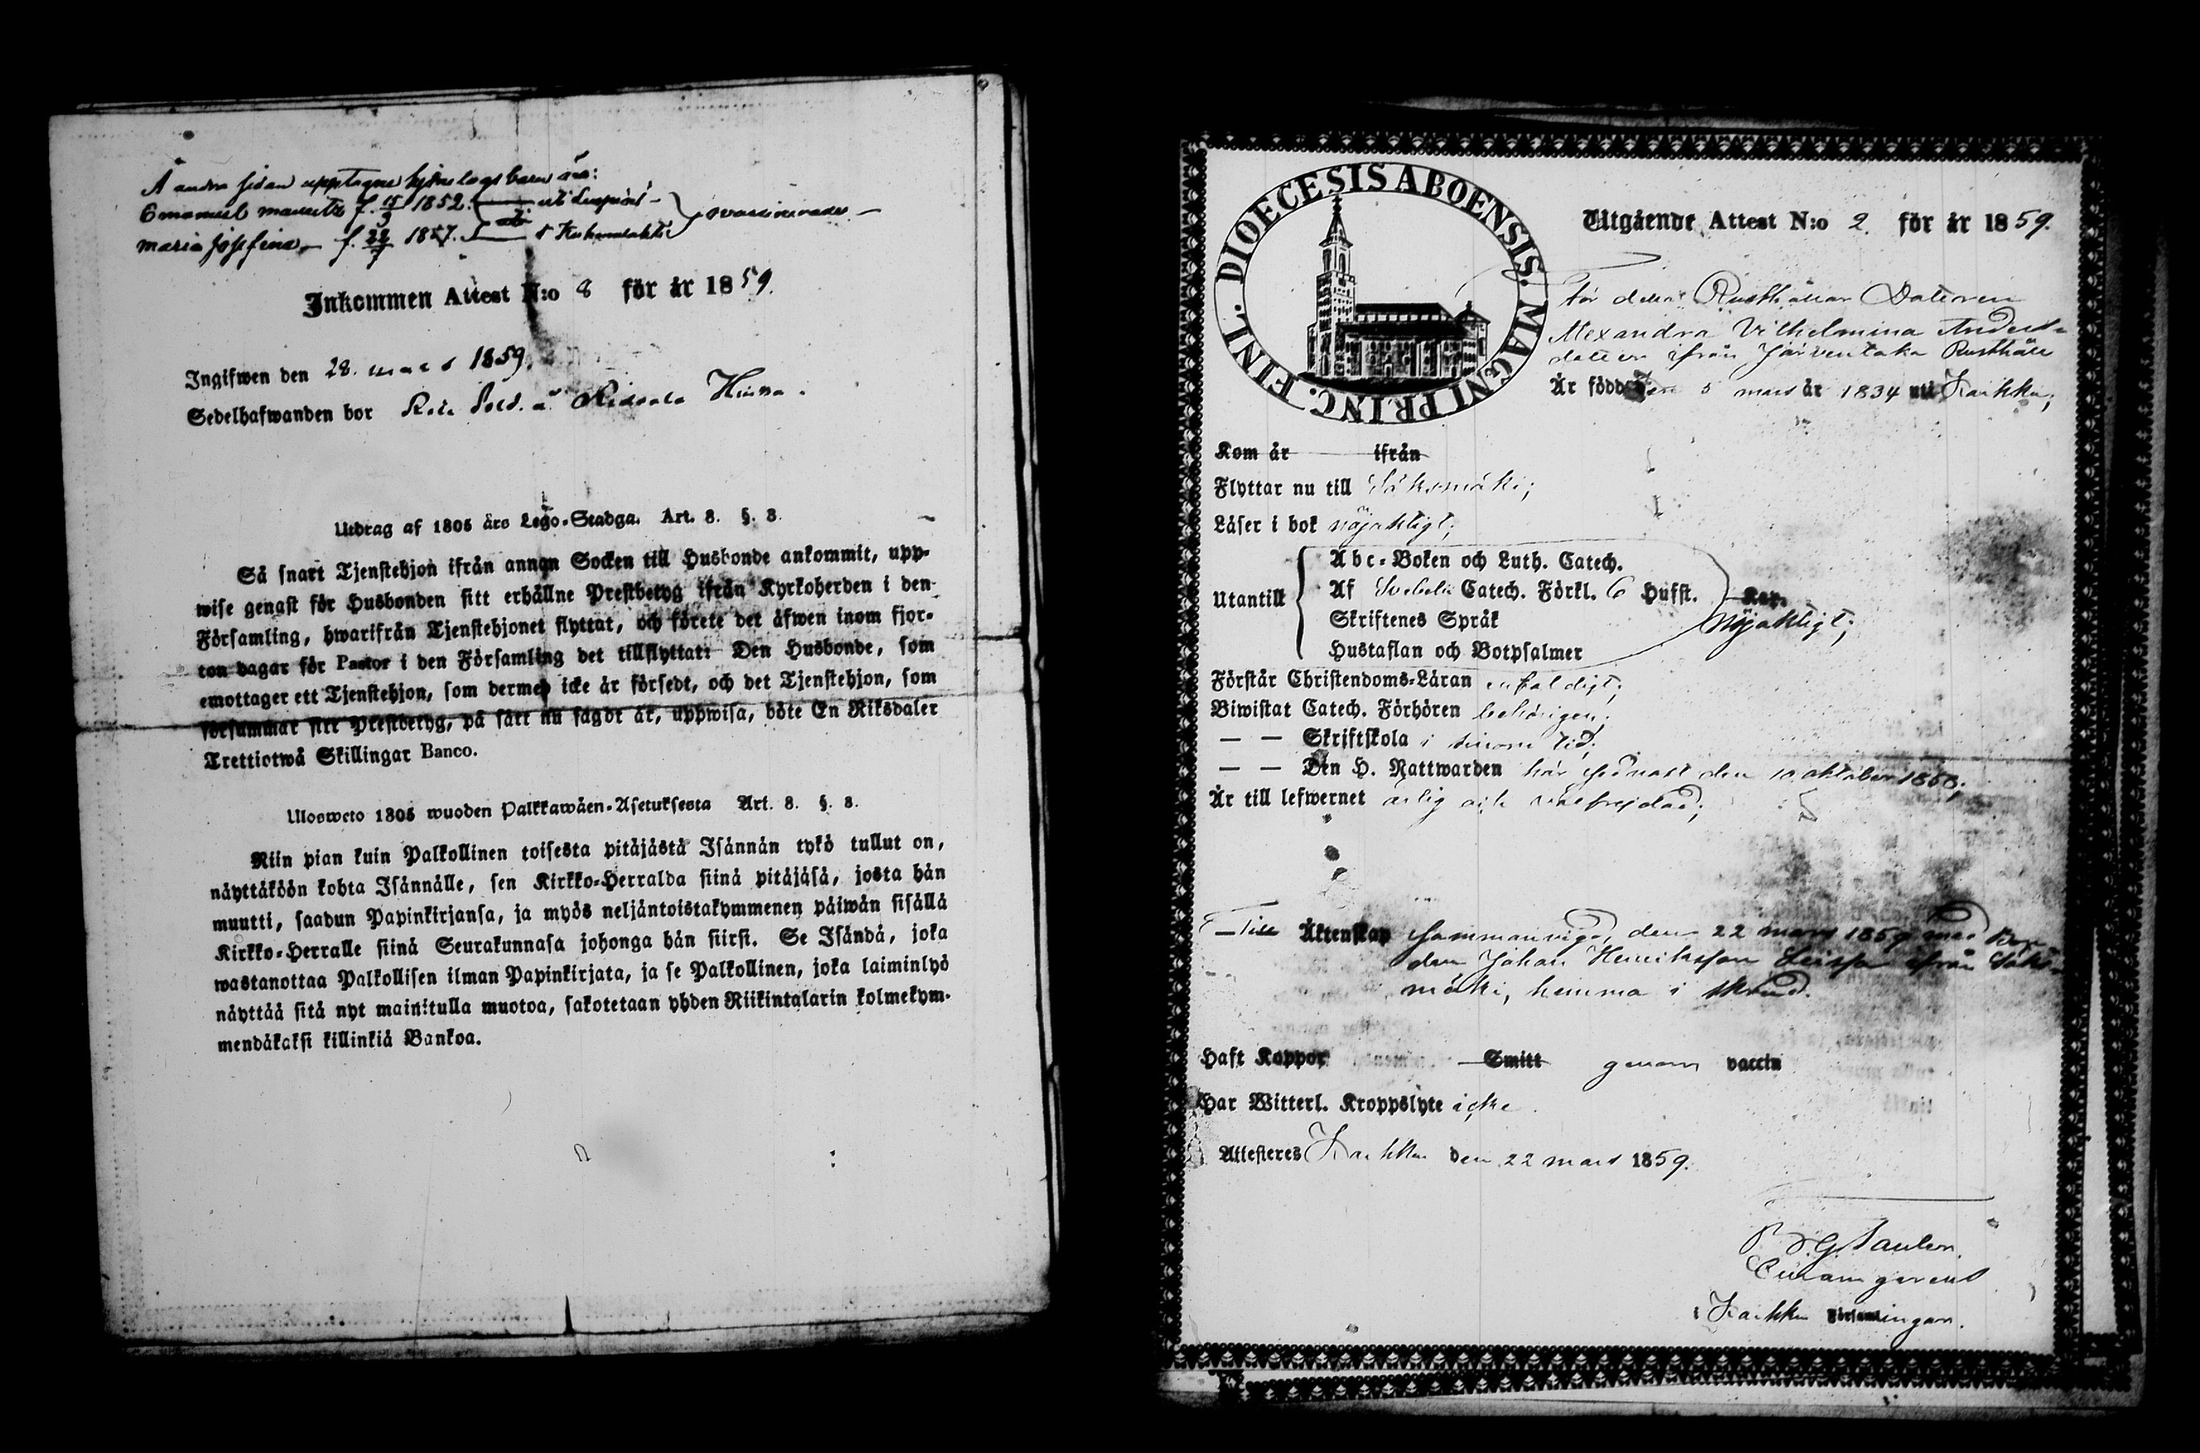 Å andra sidan upptagne hjonelags barn äro:
Emanuel Mauritz f. 15/9 1852.
Maria Josefina f. 22/7 1857. vaccinerade
Inkommen Attest N:o 8 för år 1859.
Ingifwen den 28. mars 1859.
Sedelhafwanden bor
Utdrag af 1805 års Lego-Stadga. Art. 8. §. 8.
Så snart Tjenstehjon ifrån annan Socken till Husbonde ankommit, upp-
wise genast för Husbonden sitt erhållne Prestbetyg ifrån Kyrkoherden i den
Församling, hwarifrån Tjenstehjonet flyttat, och förete det äfwen inom fjor-
ton dagar för Pastor i den Församling det tillflyttat: Den Husbonde, som
emottager ett Tjenstehjon, som dermed icke är försedt, och det Tjenstehjon, som
försummar sitt Prestbetyg, på sätt nu sagdt är, uppwisa, böte En Riksdaler
Trettiotwå Skillingar Banco.
Ulosweto 1805 wuoden Palkkawäen-Asetuksesta Art. 8. §. 8.
Niin pian kuin Palkollinen toisesta pitäjästä Isännän tykö tullut on,
näyttäköön kohta Isännälle, sen Kirkko-Herralda siinä pitäjäsä, josta hän
muutti, saadun Papinkirjansa, ja myös neljäntoistakymmenen päiwän sisällä
Kirkko-Herralle siinä Seurakunnasa johonga hän siirsi. Se Isändä, joka
wastanottaa Palkollisen ilman Papinkirjata, ja se Palkollinen, joka laiminlyö
näyttää sitä nyt mainitulla muotoa, sakotetaan yhden Riikintalarin kolmekym-
mendäkaksi killinkiä Bankoa.
DIOECESIS ABOENSIS. MAGNI PRINC. FINL.
Utgående Attest N:o 2. för år 1859.
För Rusthållar Dottren
Alexandra Vilhelmina Anders-
dotter ifrån Järventaka Rusthåll
Är född den 5 mars år 1834 uti Karkku,
Kom år ifrån
Flyttar nu till Sääksmäki;
Läser i bok nöjaktigt;
Utantill
Abc-Boken och Luth. Catech.
Af Svebelii Catech. Förkl. 6 Hufst. Kap.
Skriftenes Språk nöjaktigt;
Hustaflan och Botpsalmer
Förstår Christendoms-Läran enfaldigt;
Biwistat Catech. Förhören behörigen;
— — Skriftskola i sinom tid;
— — Den H. Nattwarden här sednast den 10 oktober 1858;
Är till lefwernet ärlig och välfrejdad;
Till Äktenskap sammanvigd den 22 mars 1859 med
Johan Henriksson ifrån Sääks-
mäki, hemma i
Haft Koppor Smitt genom vaccin
Har Witterl. Kroppslyte icke
Attesteras Karkku den 22 mars 1859.
Curam gerens
i Karkku Församlingar.